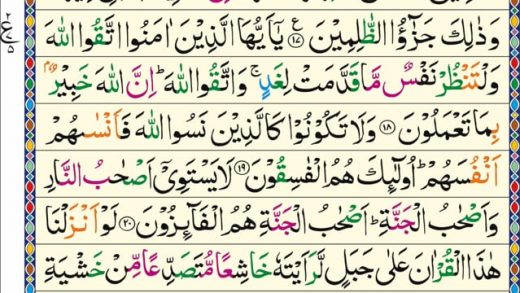 وَذٰلِكَ جَزٰٓؤُا الظّٰلِمِيْنَ ۝۱۷ يٰٓاَيُّهَا الَّذِيْنَ اٰمَنُوا اتَّقُوا اللّٰهَ
وَلْتَنْظُرْ نَفْسٌ مَّا قَدَّمَتْ لِغَدٍ ۚ وَاتَّقُوا اللّٰهَ ؕ اِنَّ اللّٰهَ خَبِيْرٌۢ
بِمَا تَعْمَلُوْنَ ۝۱۸ وَلَا تَكُوْنُوْا كَالَّذِيْنَ نَسُوا اللّٰهَ فَاَنْسٰىهُمْ
اَنْفُسَهُمْ ؕ اُولٰٓئِكَ هُمُ الْفٰسِقُوْنَ ۝۱۹ لَا يَسْتَوِيْۤ اَصْحٰبُ النَّارِ
وَاَصْحٰبُ الْجَنَّةِ ؕ اَصْحٰبُ الْجَنَّةِ هُمُ الْفَآئِزُوْنَ ۝۲۰ لَوْ اَنْزَلْنَا
هٰذَا الْقُرْاٰنَ عَلٰى جَبَلٍ لَّرَاَيْتَهٗ خَاشِعًا مُّتَصَدِّعًا مِّنْ خَشْيَةِ